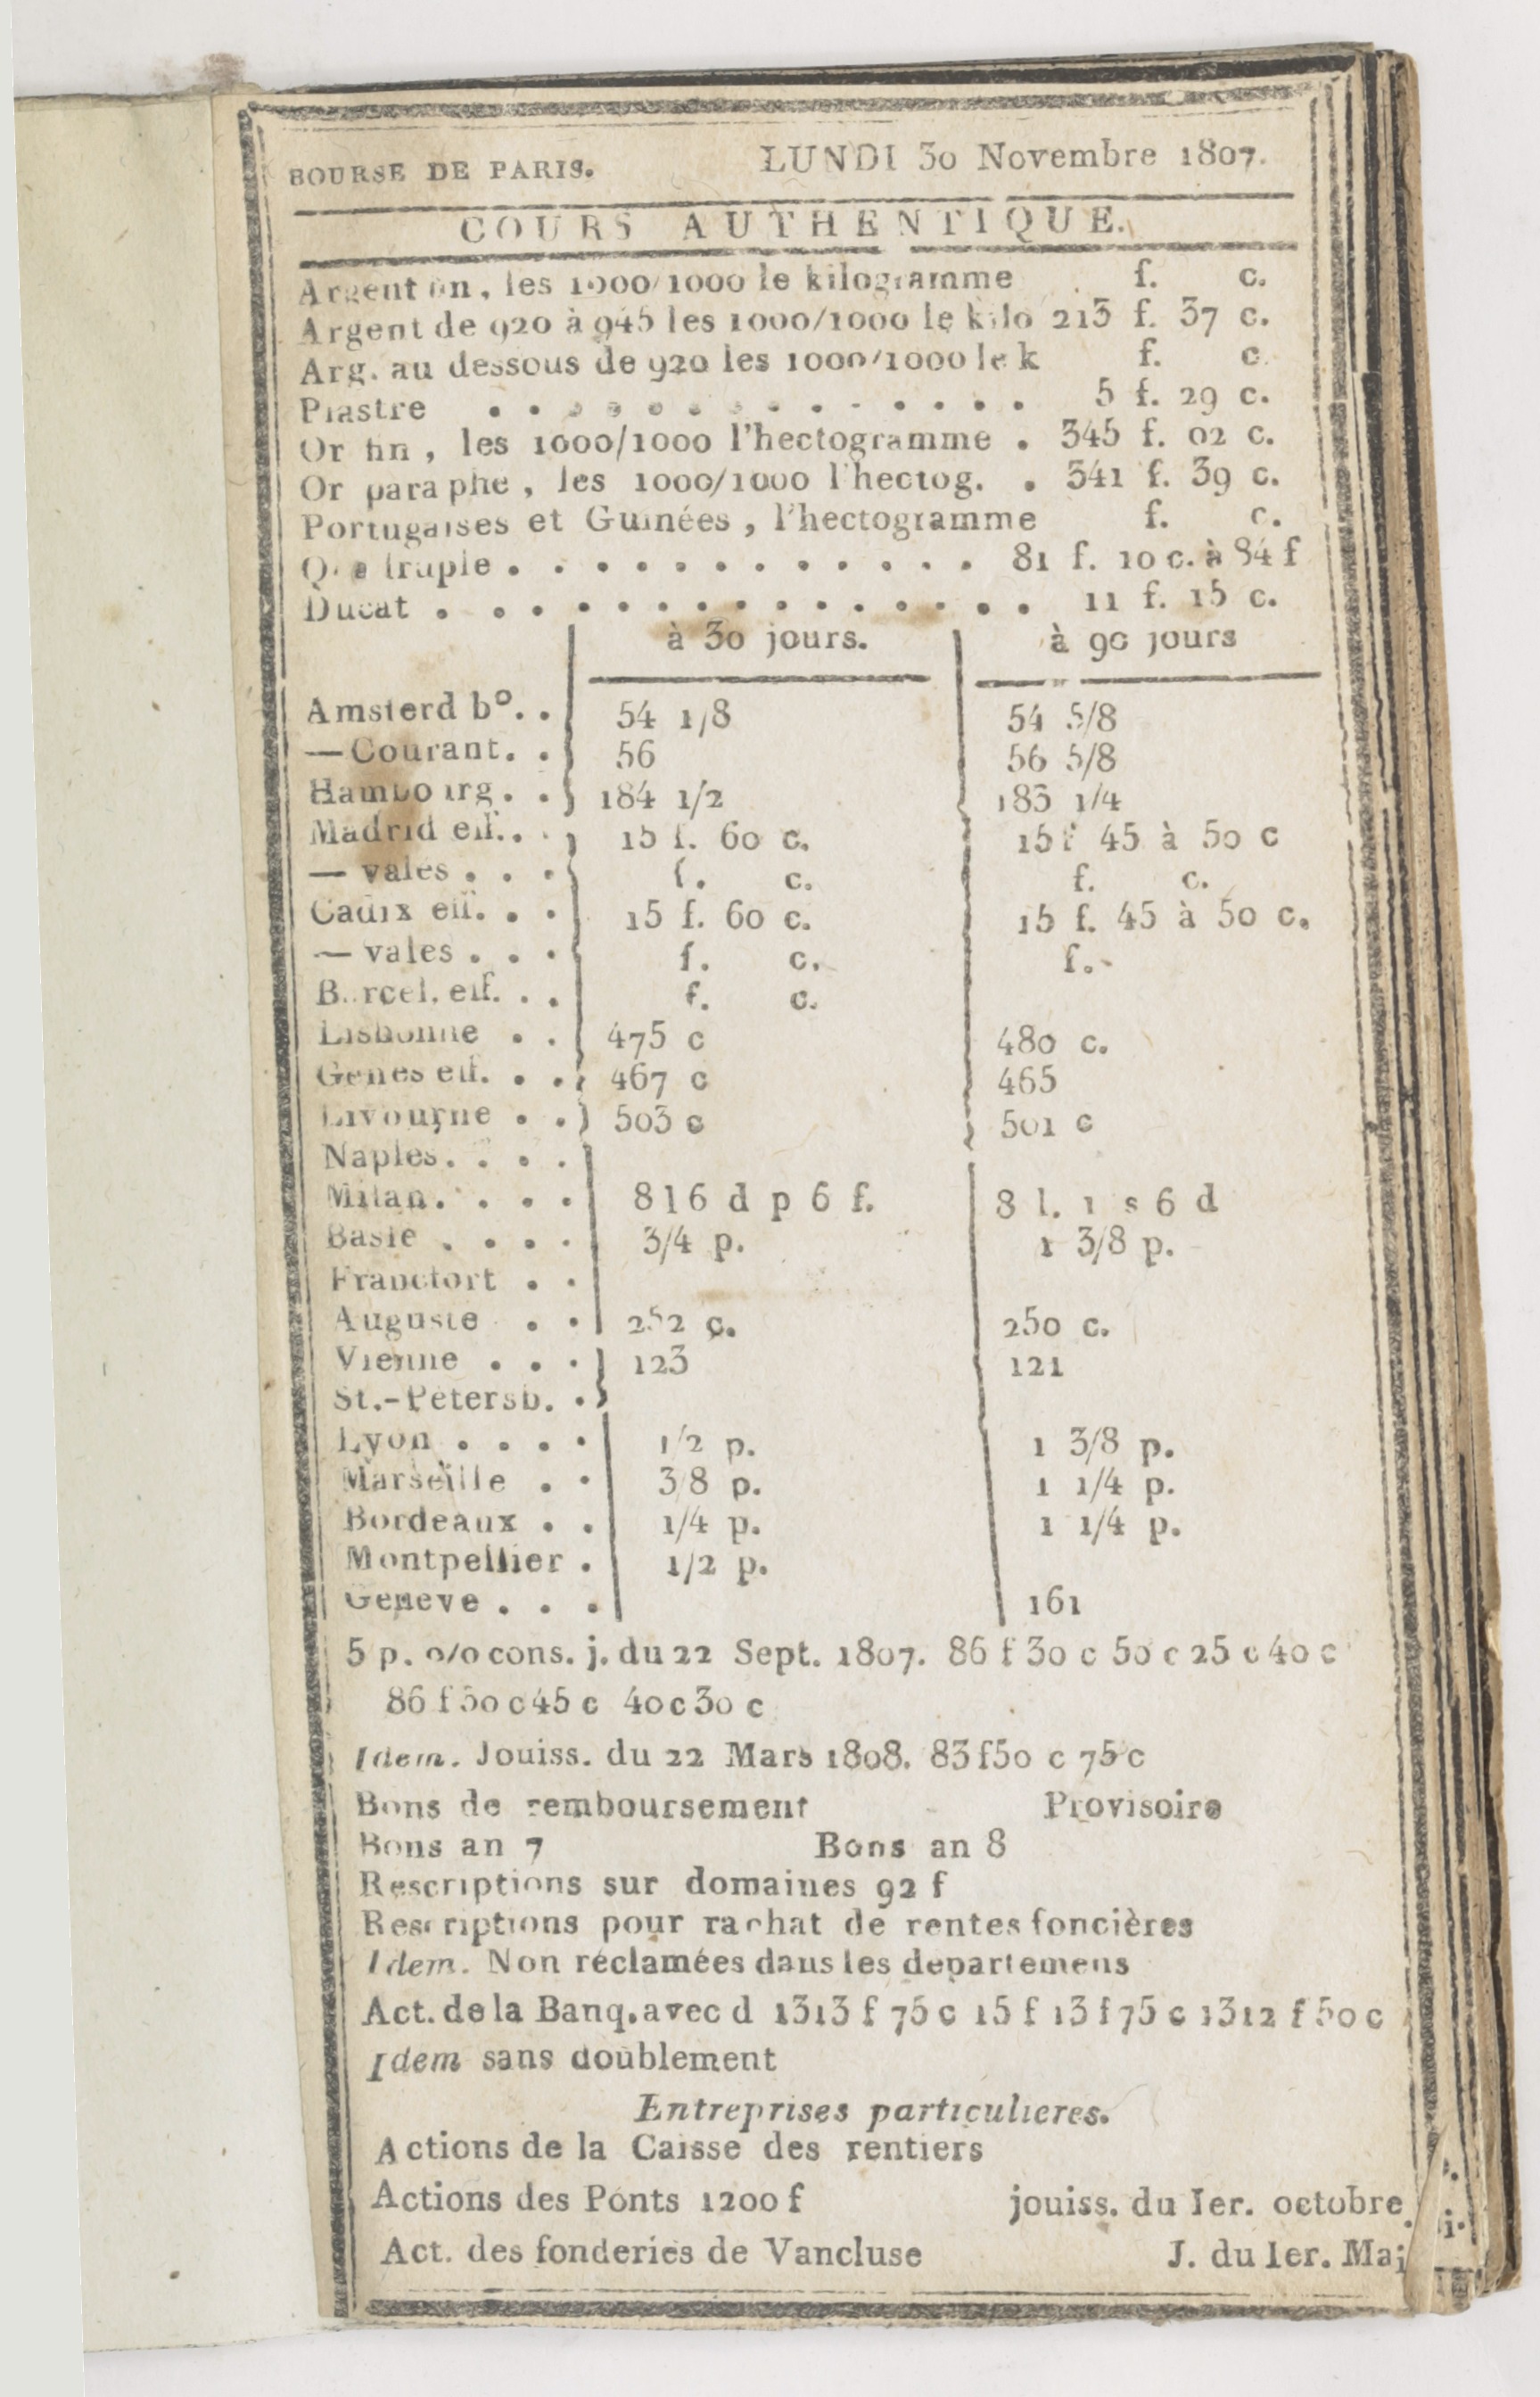 BOURSE DE PARIS. LUNDI 30 Novembre 1807.
COURS AUTHENTIQUE.
Argent fin, les 1000/1000 le kilogramme f. c.
Argent de 920 à 945 les 1000/1000 le kilo 213 f. 37 c.
Arg. au dessous de 920 les 1000/1000 le k f. c.
Piastre . . . . . . . . . . . . . . 5 f. 29 c.
Or fin, les 1000/1000 l'hectogramme . 345 f. 02 c.
Or paraphe, les 1000/1000 l'hectog. . 341 f. 39 c.
Portugaises et Guinées, l'hectogramme f. c.
Quatruple . . . . . . . . . . . . 81 f. 10 c. à 84 f
Ducat . . . . . . . . . . . . . . . 11 f. 15 c.
à 30 jours. à 90 jours
Amsterd b°. . 54 1/8 54 5/8
—Courant. . 56 56 5/8
Hambourg. . 184 1/2 183 1/4
Madrid eff. . . 15 f. 60 c. 15 f 45 à 50 c
— vales . . . f. c. f. c.
Cadix eff. . . 15 f. 60 c. 15 f. 45 à 50 c.
— vales . . . f. c. f.
Barcel. eff. . . f. c.
Lisbonne . . 475 c 480 c.
Gênes eff. . . 467 c 465
Livourne . . 503 c 501 c
Naples. . . .
Milan. . . . . 8 l 6 d p 6 f. 8 l. 1 s 6 d
Basle . . . . 3/4 p. 1 3/8 p.
Francfort . .
Auguste . . 252 c. 250 c.
Vienne . . . 123 121
St.-Pétersb. .
Lyon . . . . 1/2 p. 1 3/8 p.
Marseille . . 3/8 p. 1 1/4 p.
Bordeaux . . 1/4 p. 1 1/4 p.
Montpellier . 1/2 p.
Geneve . . . 161
5 p. o/o cons. j. du 22 Sept. 1807. 86 f 30 c 50 c 25 c 40 c
86 f 50 c 45 c 40 c 30 c
Idem. Jouiss. du 22 Mars 1808. 83 f 50 c 75 c
Bons de remboursement Provisoire
Bons an 7 Bons an 8
Rescriptions sur domaines 92 f
Rescriptions pour rachat de rentes foncières
Idem. Non réclamées dans les departemens
Act. de la Banq. avec d 1313 f 75 c 15 f 13 f 75 c 1312 f 50 c
Idem sans doublement
Entreprises particulieres.
Actions de la Caisse des rentiers
Actions des Ponts 1200 f jouiss. du Ier. octobre
Act. des fonderies de Vancluse J. du Ier. Mai